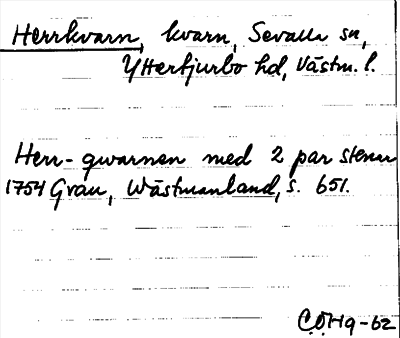 Herrkvarn, kvarn, Sevalla sn,
Ytterfjurbo hd, Västm. l.
Herr-qwarnen med 2 par stenar
1754 Grau, Wästmanland, s. 651.
C.Ö.Hg-62